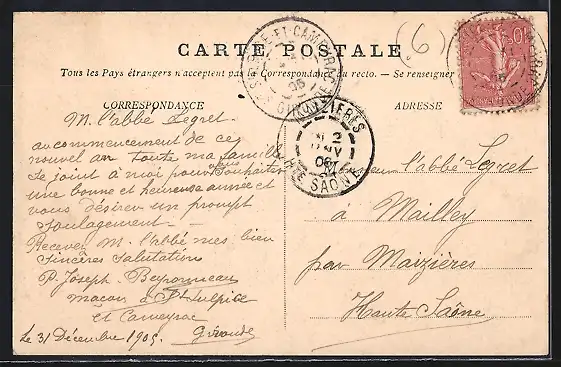 CARTE POSTALE
Tous les Pays étrangers n'acceptent pas la Correspondance au recto. — Se renseigner
CORRESPONDANCE
M. l'abbé Legret.
au commencement de ce
nouvel an toute ma famille
se joint à moi pour vous souhaiter
une bonne et heureuse année et
vous désirer un prompt
soulagement.
Recevez M. l'abbé mes bien
sincères salutations
P. Joseph
maçon à St Sulpice
et Cameyrac
Gironde
Le 31 Décembre 1905.
ADRESSE
Monsieur l'abbé Legret
à Mailley
par Maizières
Haute Saône
(6)
ST SULPICE-ET-CAMEYRAC
GIRONDE
MAIZIERES
2
JANV
06
HTE SAONE
10